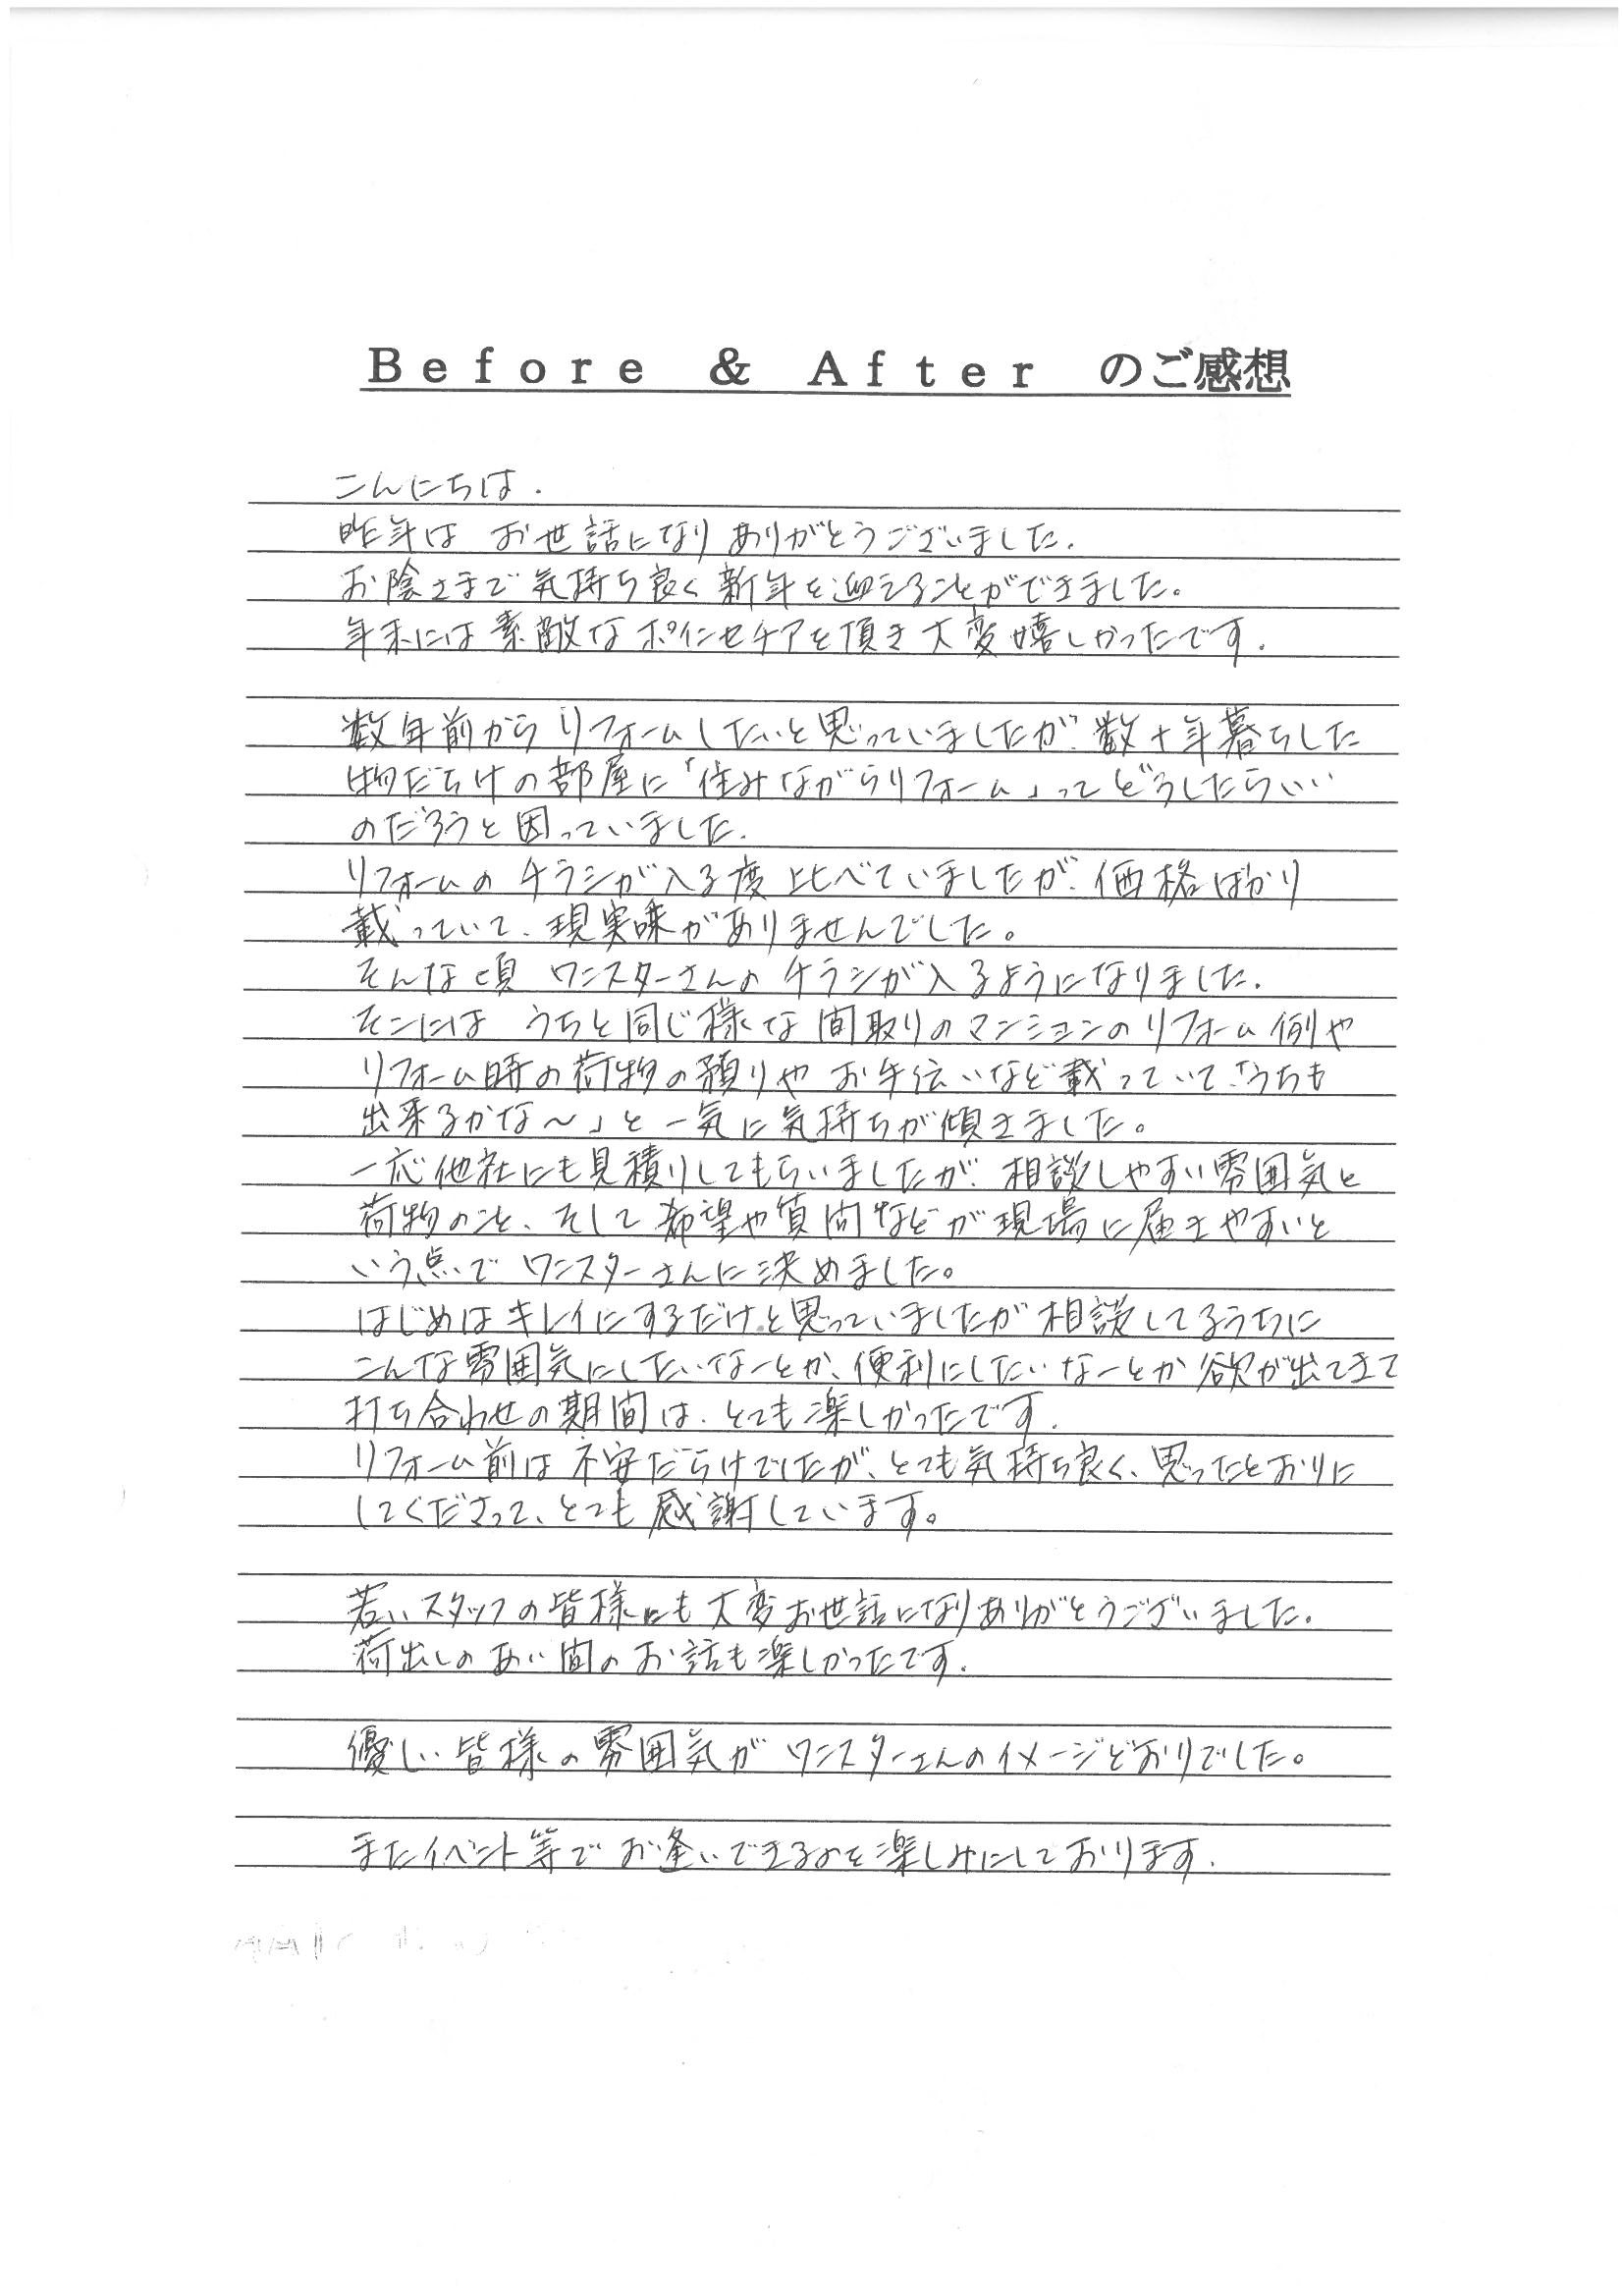 Before & After のご感想
こんにちは.
昨年は お世話になり ありがとうございました.
お陰さまで 気持ち良く 新年を迎えることができました。
年末には 素敵なポインセチアを頂き 大変嬉しかったです.
数年前から リフォームしたいと思っていましたが、数十年暮らした
物だらけの部屋に「住みながらリフォーム」って どうしたらいい
のだろうと困っていました.
リフォームの チラシが入る度 比べていましたが、価格ばかり
載っていて、現実味がありませんでした。
そんな頃 ワンスターさんの チラシが入るようになりました.
そこには うちと同じ様な 間取りのマンションのリフォーム例や
リフォーム時の荷物の預りや お手伝いなど載っていて「うちも
出来るかな〜」と 一気に気持ちが傾きました。
一応他社にも見積りしてもらいましたが、相談しやすい雰囲気と
荷物のこと、そして希望や質問などが現場に届きやすいと
いう点で ワンスターさんに決めました。
はじめはキレイにするだけと思っていましたが相談してるうちに
こんな雰囲気にしたいなーとか、便利にしたいなーとか 欲が出てきて
打ち合わせの期間は、とても楽しかったです.
リフォーム前は 不安だらけでしたが、とても気持ち良く、思ったとおりに
してくださって、とても 感謝しています。
若いスタッフの皆様にも 大変お世話になりありがとうございました.
荷出しの あい間の お話も楽しかったです.
優しい皆様の雰囲気が ワンスターさんのイメージどおりでした。
またイベント等で お逢いできるのを楽しみにしております.